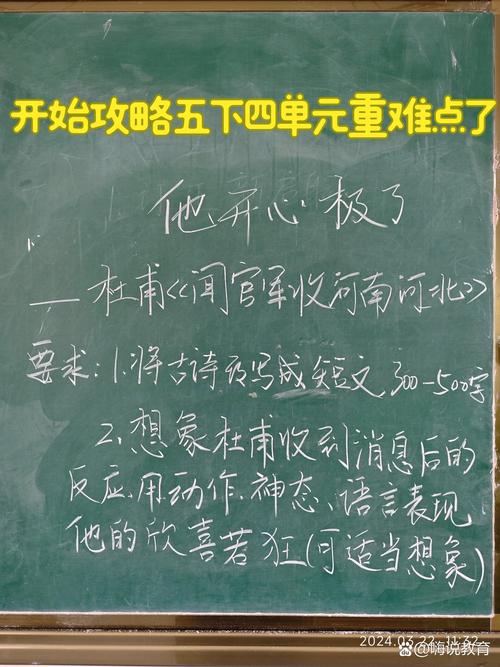 开始攻略五下四单元重难点了
他开心极了
——杜甫《闻官军收河南河北》
要求:1.将古诗改写成短文,300-500字
2.想象杜甫收到消息后的
反应,用动作、神态、语言表现
他的欣喜若狂(可适当想象)
2024.03.22 11:32
嗨说教育